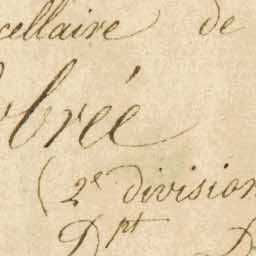 cellaire de
bréé
(2e division
Dpt D